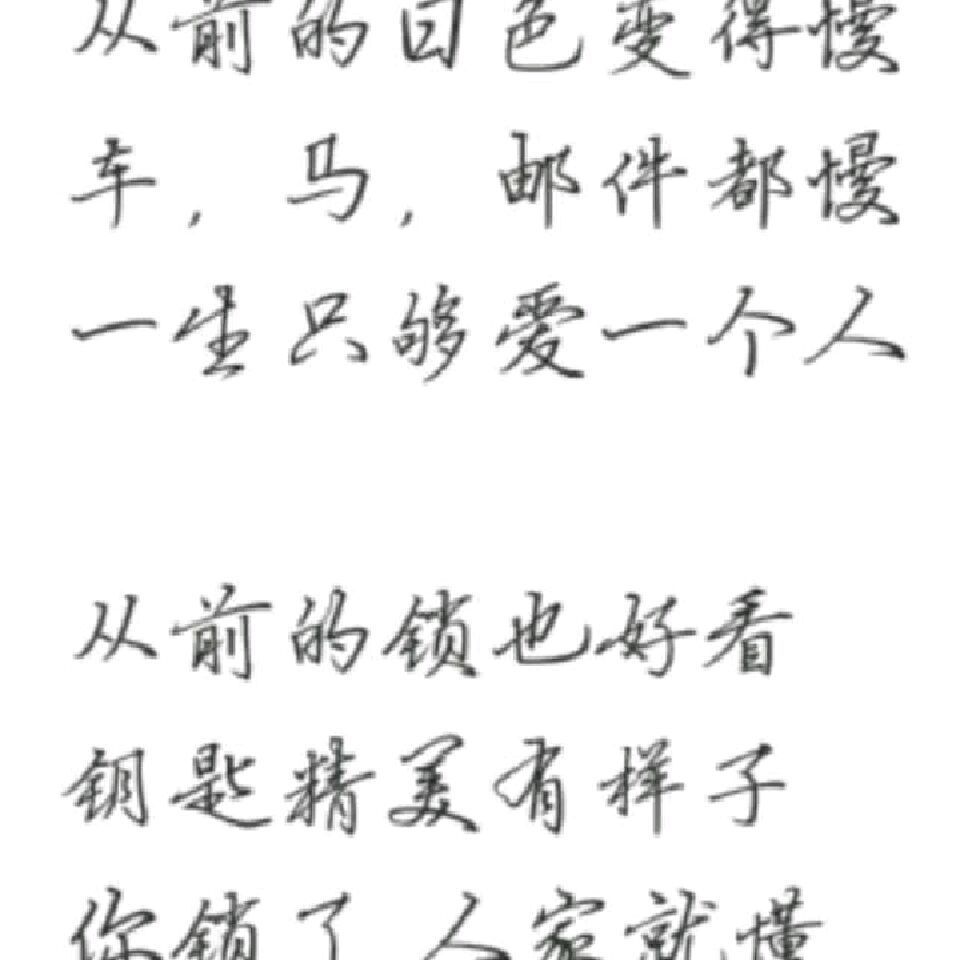 从前的日色变得慢
车，马，邮件都慢
一生只够爱一个人
从前的锁也好看
钥匙精美有样子
你锁了 人家就懂